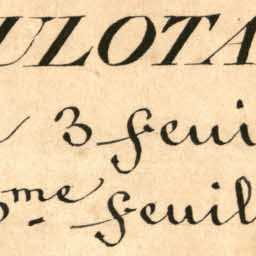 ULOTA
3 feui
3me feuil